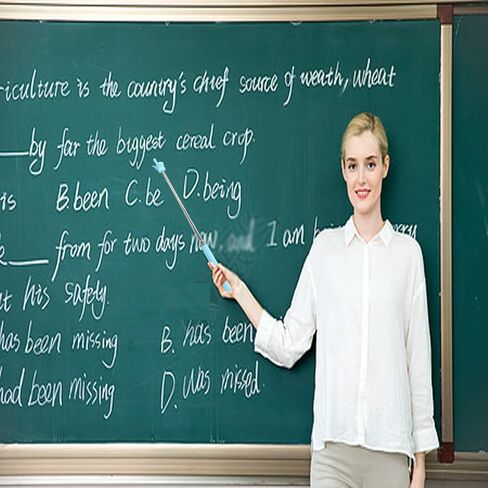 riculture is the country's chief source of weath, wheat
____by far the biggest cereal crop.
is B.been C.be D.being
e____ from for two days now, and I am
at his safety.
has been missing B. has been
had been missing D. was missed.